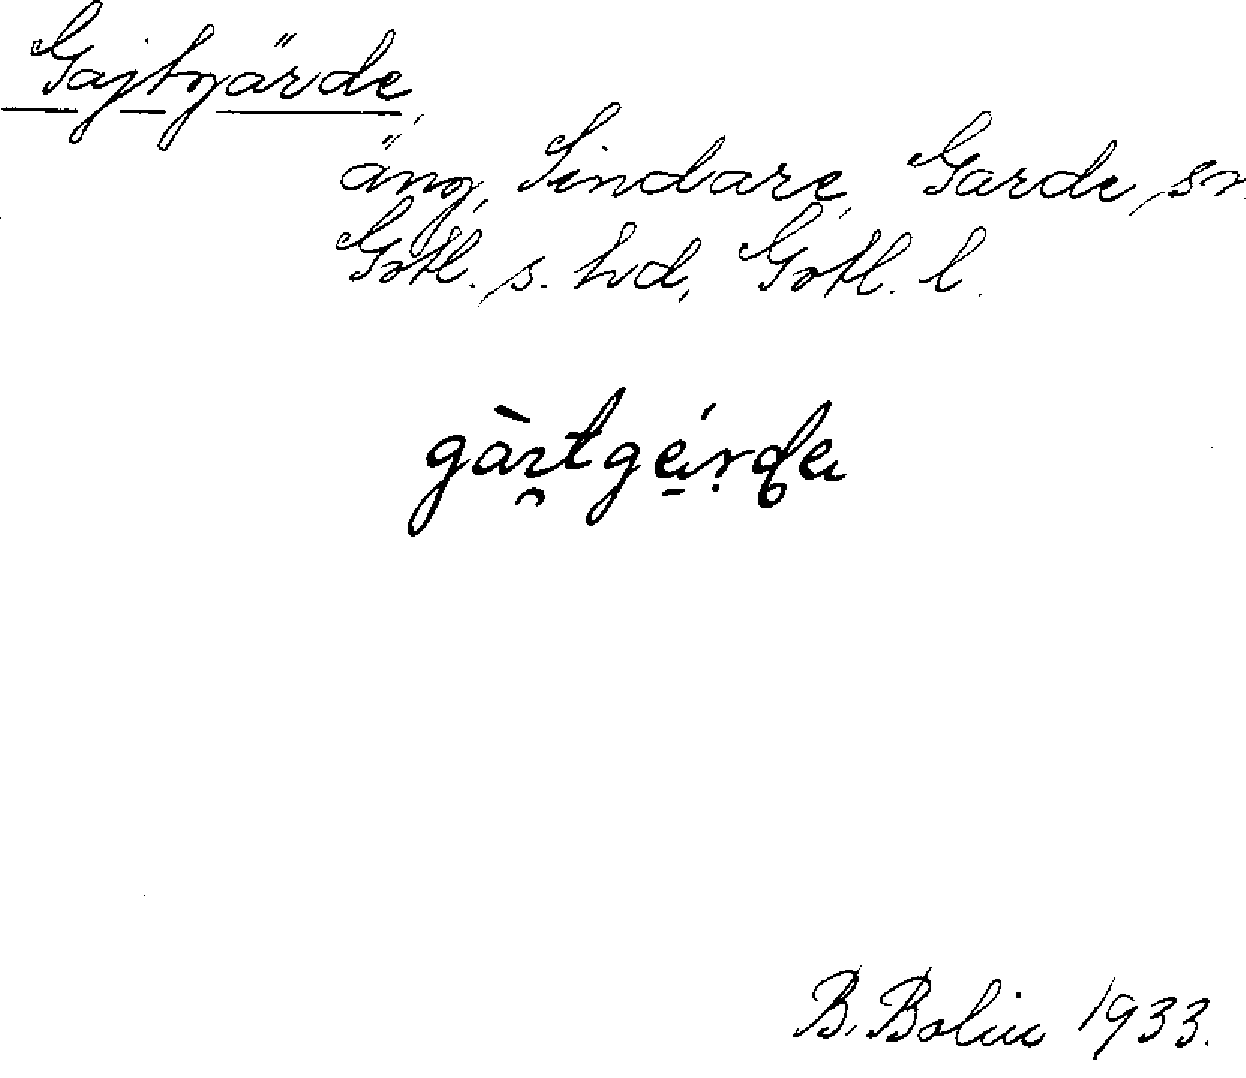 Gajtgärde,
äng, Sindare, Garde sn.
Gotl. s. hd, Gotl. l.
B. Bolin 1933.